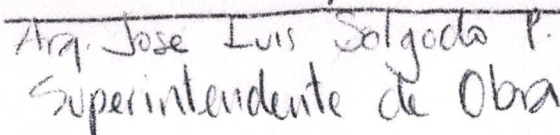 Arq. Jose Luis Salgado P.
Superintendente de Obra